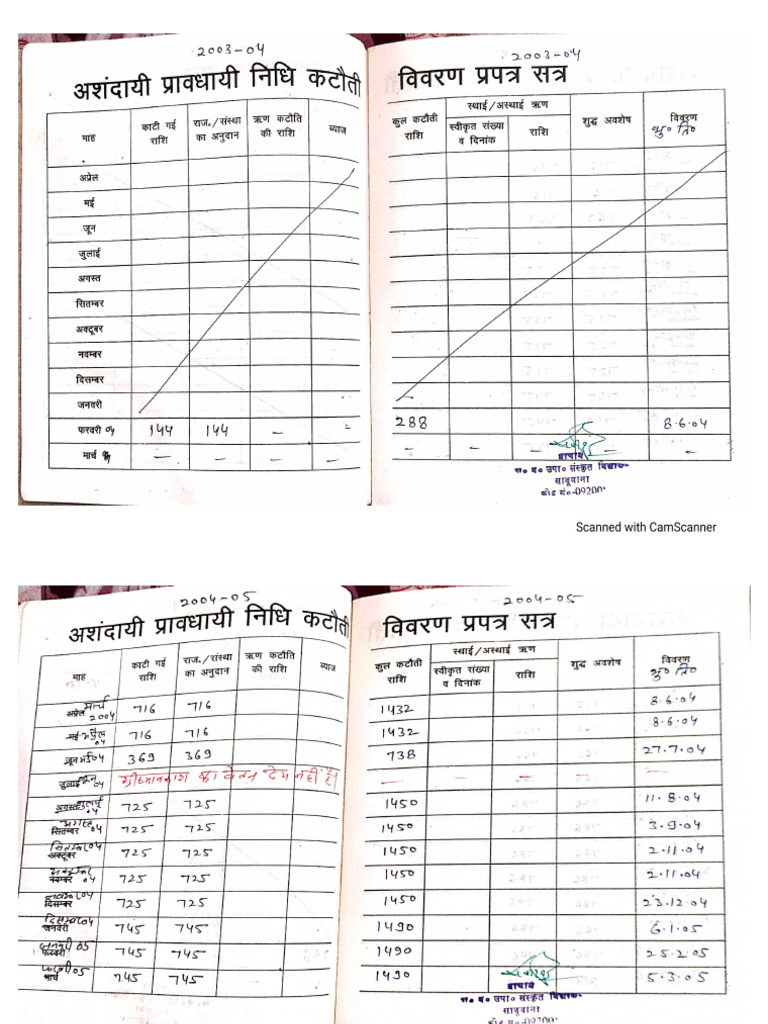 2003-04 2003-04
अशंदायी प्रावधायी निधि कटौती विवरण प्रपत्र सत्र
माह काटी गई राशि राज./संस्था का अनुदान ऋण कटौति की राशि ब्याज कुल कटौती राशि स्थाई/अस्थाई ऋण स्वीकृत संख्या व दिनांक राशि शुद्ध अवशेष विवरण भु० ति०
अप्रेल
मई
जून
जुलाई
अगस्त
सितम्बर
अक्टूबर
नवम्बर
दिसम्बर
जनवरी
फरवरी 04 144 144 – – 288 8.6.04
मार्च 04 – – – – – – – – –
प्राचार्य
रा० व० उपा० संस्कृत विद्या०
साबूवाना
कोड नं०-09200
Scanned with CamScanner
2004-05 2004-05
अशंदायी प्रावधायी निधि कटौती विवरण प्रपत्र सत्र
माह काटी गई राशि राज./संस्था का अनुदान ऋण कटौति की राशि ब्याज कुल कटौती राशि स्थाई/अस्थाई ऋण स्वीकृत संख्या व दिनांक राशि शुद्ध अवशेष विवरण भु० ति०
अप्रेल मार्च 2004 716 716 1432 8.6.04
मई 04 716 716 1432 8.6.04
जून मई 04 369 369 738 27.7.04
जुलाई जून 04 ग्रीष्मावकाश का वेतन देय नहीं है। – – – – –
अगस्त जुलाई 04 725 725 1450 11.8.04
सितम्बर अगस्त 04 725 725 1450 3.9.04
अक्टूबर सितम्बर 04 725 725 1450 2.11.04
नवम्बर 04 725 725 1450 2.11.04
दिसम्बर नवम्बर 04 725 725 1450 23.12.04
जनवरी दिसम्बर 04 745 745 1490 6.1.05
फरवरी जनवरी 05 745 745 1490 25.2.05
मार्च फरवरी 05 745 745 1490 5.3.05
प्राचार्य
रा० व० उपा० संस्कृत विद्या०
साबूवाना
कोड नं०-09200